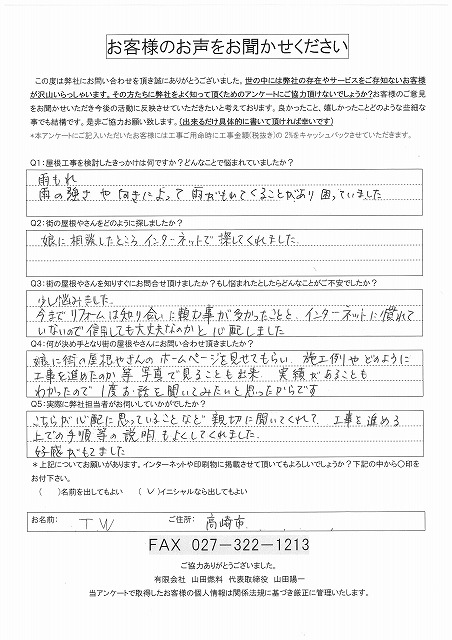 お客様のお声をお聞かせください
この度は弊社にお問い合わせを頂き誠にありがとうございました。世の中には弊社の存在やサービスをご存知ないお客様
が沢山いらっしゃいます。その方たちに弊社をよく知って頂くためのアンケートにご協力頂けないでしょうか?お客様のご意見
をお聞かせいただき今後の活動に反映させていただきたいと考えております。良かったこと、嬉しかったことどのような些細な
事でも結構です。是非ご協力お願い致します。(出来るだけ具体的に書いて頂ければ幸いです)
*本アンケートにご記入いただいたお客様には工事ご用命時に工事金額(税抜き)の2%をキャッシュバックさせていただきます。
Q1:屋根工事を検討したきっかけは何ですか?どんなことで悩まれていましたか?
雨もれ
雨の強さや向きによって雨がもれてくることがあり困っていました
Q2:街の屋根やさんをどのように探しましたか?
娘に相談したところインターネットで探してくれました
Q3:街の屋根やさんを知りすぐにお問合せ頂けましたか?もし悩まれたとしたらどんなことがご不安でしたか?
少し悩みました。
今までリフォームは知り合いに頼む事が多かったことと、インターネットに慣れて
いないので信用しても大丈夫なのかと心配しました
Q4:何が決め手となり街の屋根やさんにお問い合わせ頂きましたか?
娘に街の屋根やさんのホームページを見せてもらい、施工例やどのように
工事を進めたのか等写真で見ることも出来 実績があることも
わかったので1度お話を聞いてみたいと思ったからです
Q5:実際に弊社担当者がお伺いしていかがでしたか?
こちらが心配に思っていることなど親切に聞いてくれて、工事を進める
上での手順等の説明もよくしてくれました。
好感がもてました
*上記についてお願いがあります。インターネットや印刷物に掲載させて頂いてもよろしいでしょうか?下記の中から〇印をお付下さい。
( )名前を出してもよい (V)イニシャルなら出してもよい
お名前: TW ご住所: 高崎市
FAX 027-322-1213
ご協力ありがとうございました。
有限会社 山田燃料 代表取締役 山田陽一
当アンケートで取得したお客様の個人情報は関係法規に基づき厳正に管理いたします。